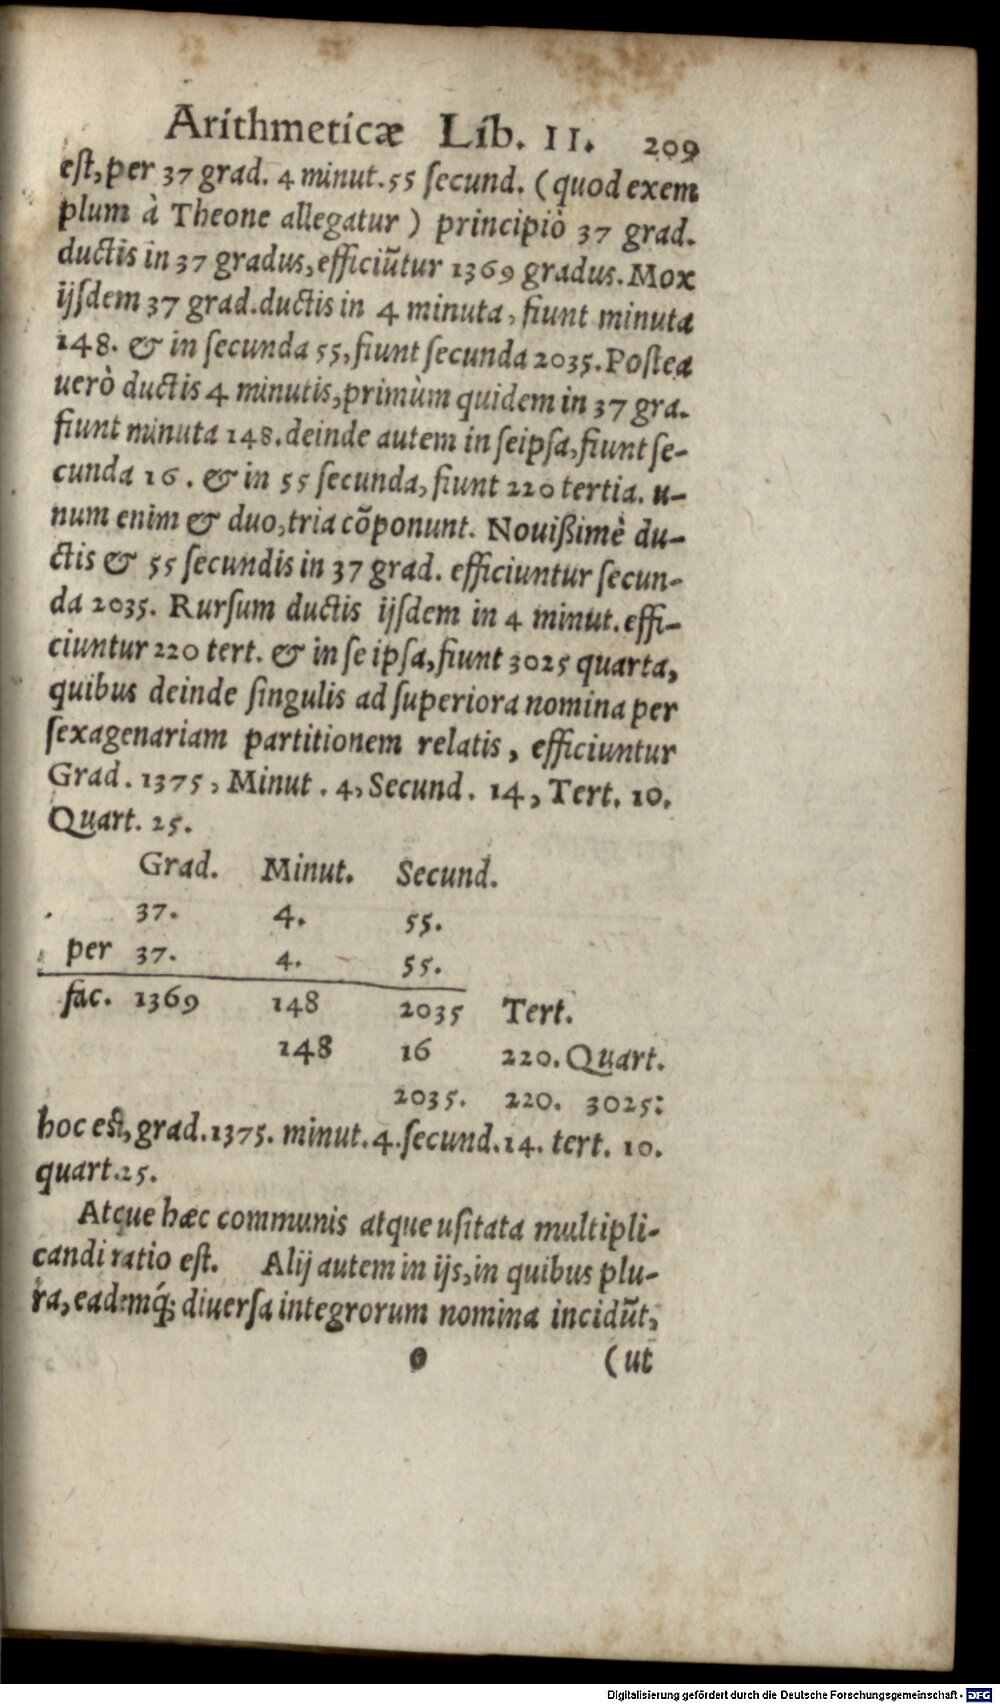 Arithmeticæ Lib. II. 209
est, per 37 grad. 4 minut. 55 secund. (quod exem
plum à Theone allegatur) principiò 37 grad.
ductis in 37 gradus, efficiũtur 1369 gradus. Mox
ijsdem 37 grad. ductis in 4 minuta, fiunt minuta
148. & in secunda 55, fiunt secunda 2035. Postea
uerò ductis 4 minutis, primùm quidem in 37 gra.
fiunt minuta 148. deinde autem in seipsa, fiunt se-
cunda 16. & in 55 secunda, fiunt 220 tertia. u-
num enim & duo, tria cõponunt. Nouißimè du-
ctis & 55 secundis in 37 grad. efficiuntur secun-
da 2035. Rursum ductis ijsdem in 4 minut. effi-
ciuntur 220 tert. & in se ipsa, fiunt 3025 quarta,
quibus deinde singulis ad superiora nomina per
sexagenariam partitionem relatis, efficiuntur
Grad. 1375, Minut. 4, Secund. 14, Tert. 10.
Quart. 25.
Grad. Minut. Secund.
37. 4. 55.
per 37. 4. 55.
fac. 1369 148 2035 Tert.
148 16 220. Quart.
2035. 220. 3025:
hoc est, grad. 1375. minut. 4. secund. 14. tert. 10.
quart. 25.
Atque hæc communis atque usitata multipli-
candi ratio est. Alij autem in ijs, in quibus plu-
ra, eademq́; diuersa integrorum nomina incidũt,
o (ut
Digitalisierung gefördert durch die Deutsche Forschungsgemeinschaft - DFG